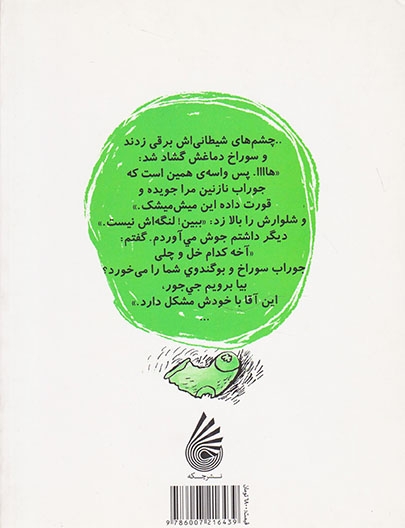 ..چشم‌های شیطانی‌اش برقی زدند
و سوراخ دماغش گشاد شد:
«هاااا. پس واسه‌ی همین است که
جوراب نازنین مرا جویده و
قورت داده این میش‌میشک.»
و شلوارش را بالا زد: «ببین! لنگه‌اش نیست.»
دیگر داشتم جوش می‌آوردم. گفتم:
«آخه کدام خل و چلی
جوراب سوراخ و بوگندوی شما را می‌خورد؟
بیا برویم جی‌جور،
این آقا با خودش مشکل دارد.»
...
نشر چکه
9 786007 216439
قیمت: ۶۸۰۰ تومان